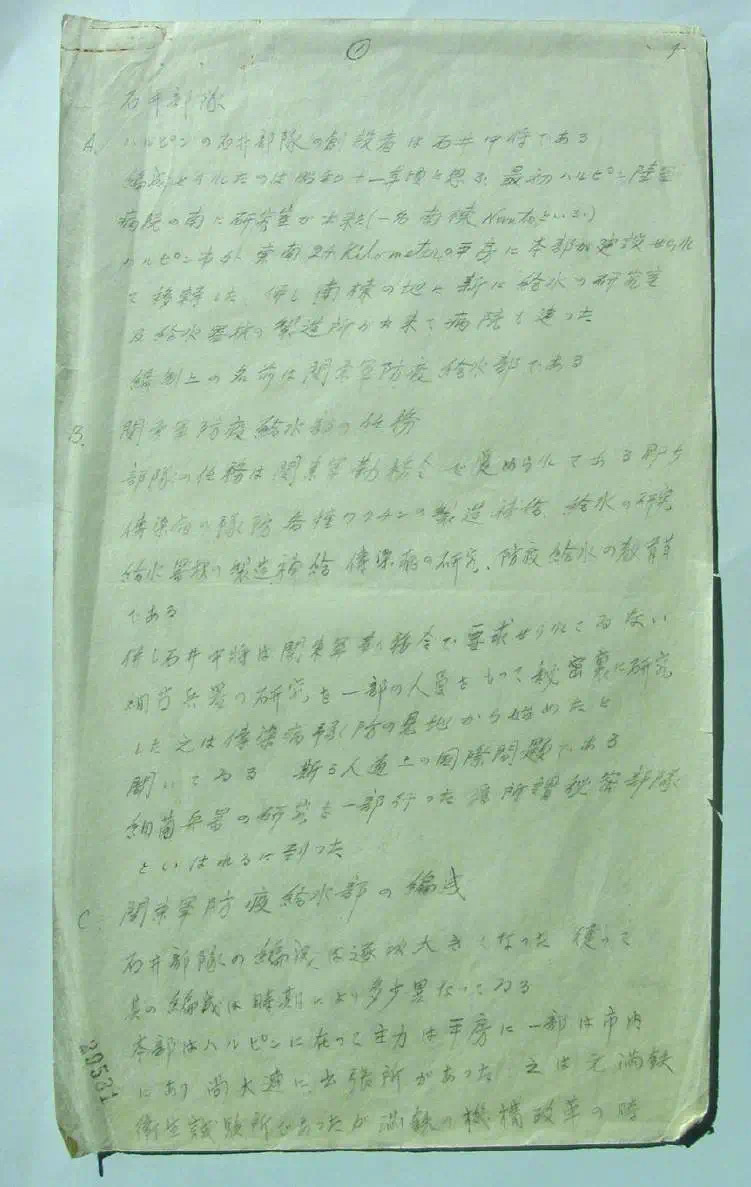 ① 1
石井部隊
A. ハルピンの石井部隊の創設者は石井中将である
編成されたのは昭和十一年頃と想ふ 最初ハルピン陸軍
病院の南に研究室が出来た(一名南棟 といふ)
ハルピン市から東南24Kilometerの平房に本部が建設せられ
て移転した 併し南棟の地に新に給水の研究室
及給水器材の製造所が出来て病院も建った
編制上の名前は関東軍防疫給水部である
B. 関東軍防疫給水部の任務
部隊の任務は関東軍勤務令で定められてある 即ち
傳染病の豫防 各種ワクチンの製造 補給 給水の研究
給水器材の製造補給 傳染病の研究、防疫給水の教育等
である
併し石井中将は関東軍勤務令で要求せられてゐない
細菌兵器の研究を一部の人員をもって秘密裏に研究
した 之は傳染病豫防の見地から始めたと
聞いてゐる 斯る人道上の国際問題である
細菌兵器の研究を一部行った為所謂秘密部隊
といはれるに到った
C. 関東軍防疫給水部の編成
石井部隊の編成は逐次大きくなった 従って
其の編成は時期により多少異なってゐる
本部はハルピンに在って主力は平房に一部は市内
にあり 尚大連に出張所があった 之は元満鉄
衛生試験所であったが満鉄の機構改革の時
29521